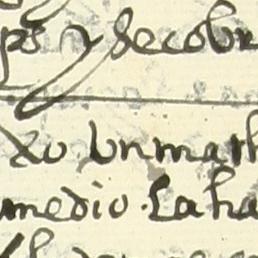 ps y de cobr
xo vn math
medio. La ha